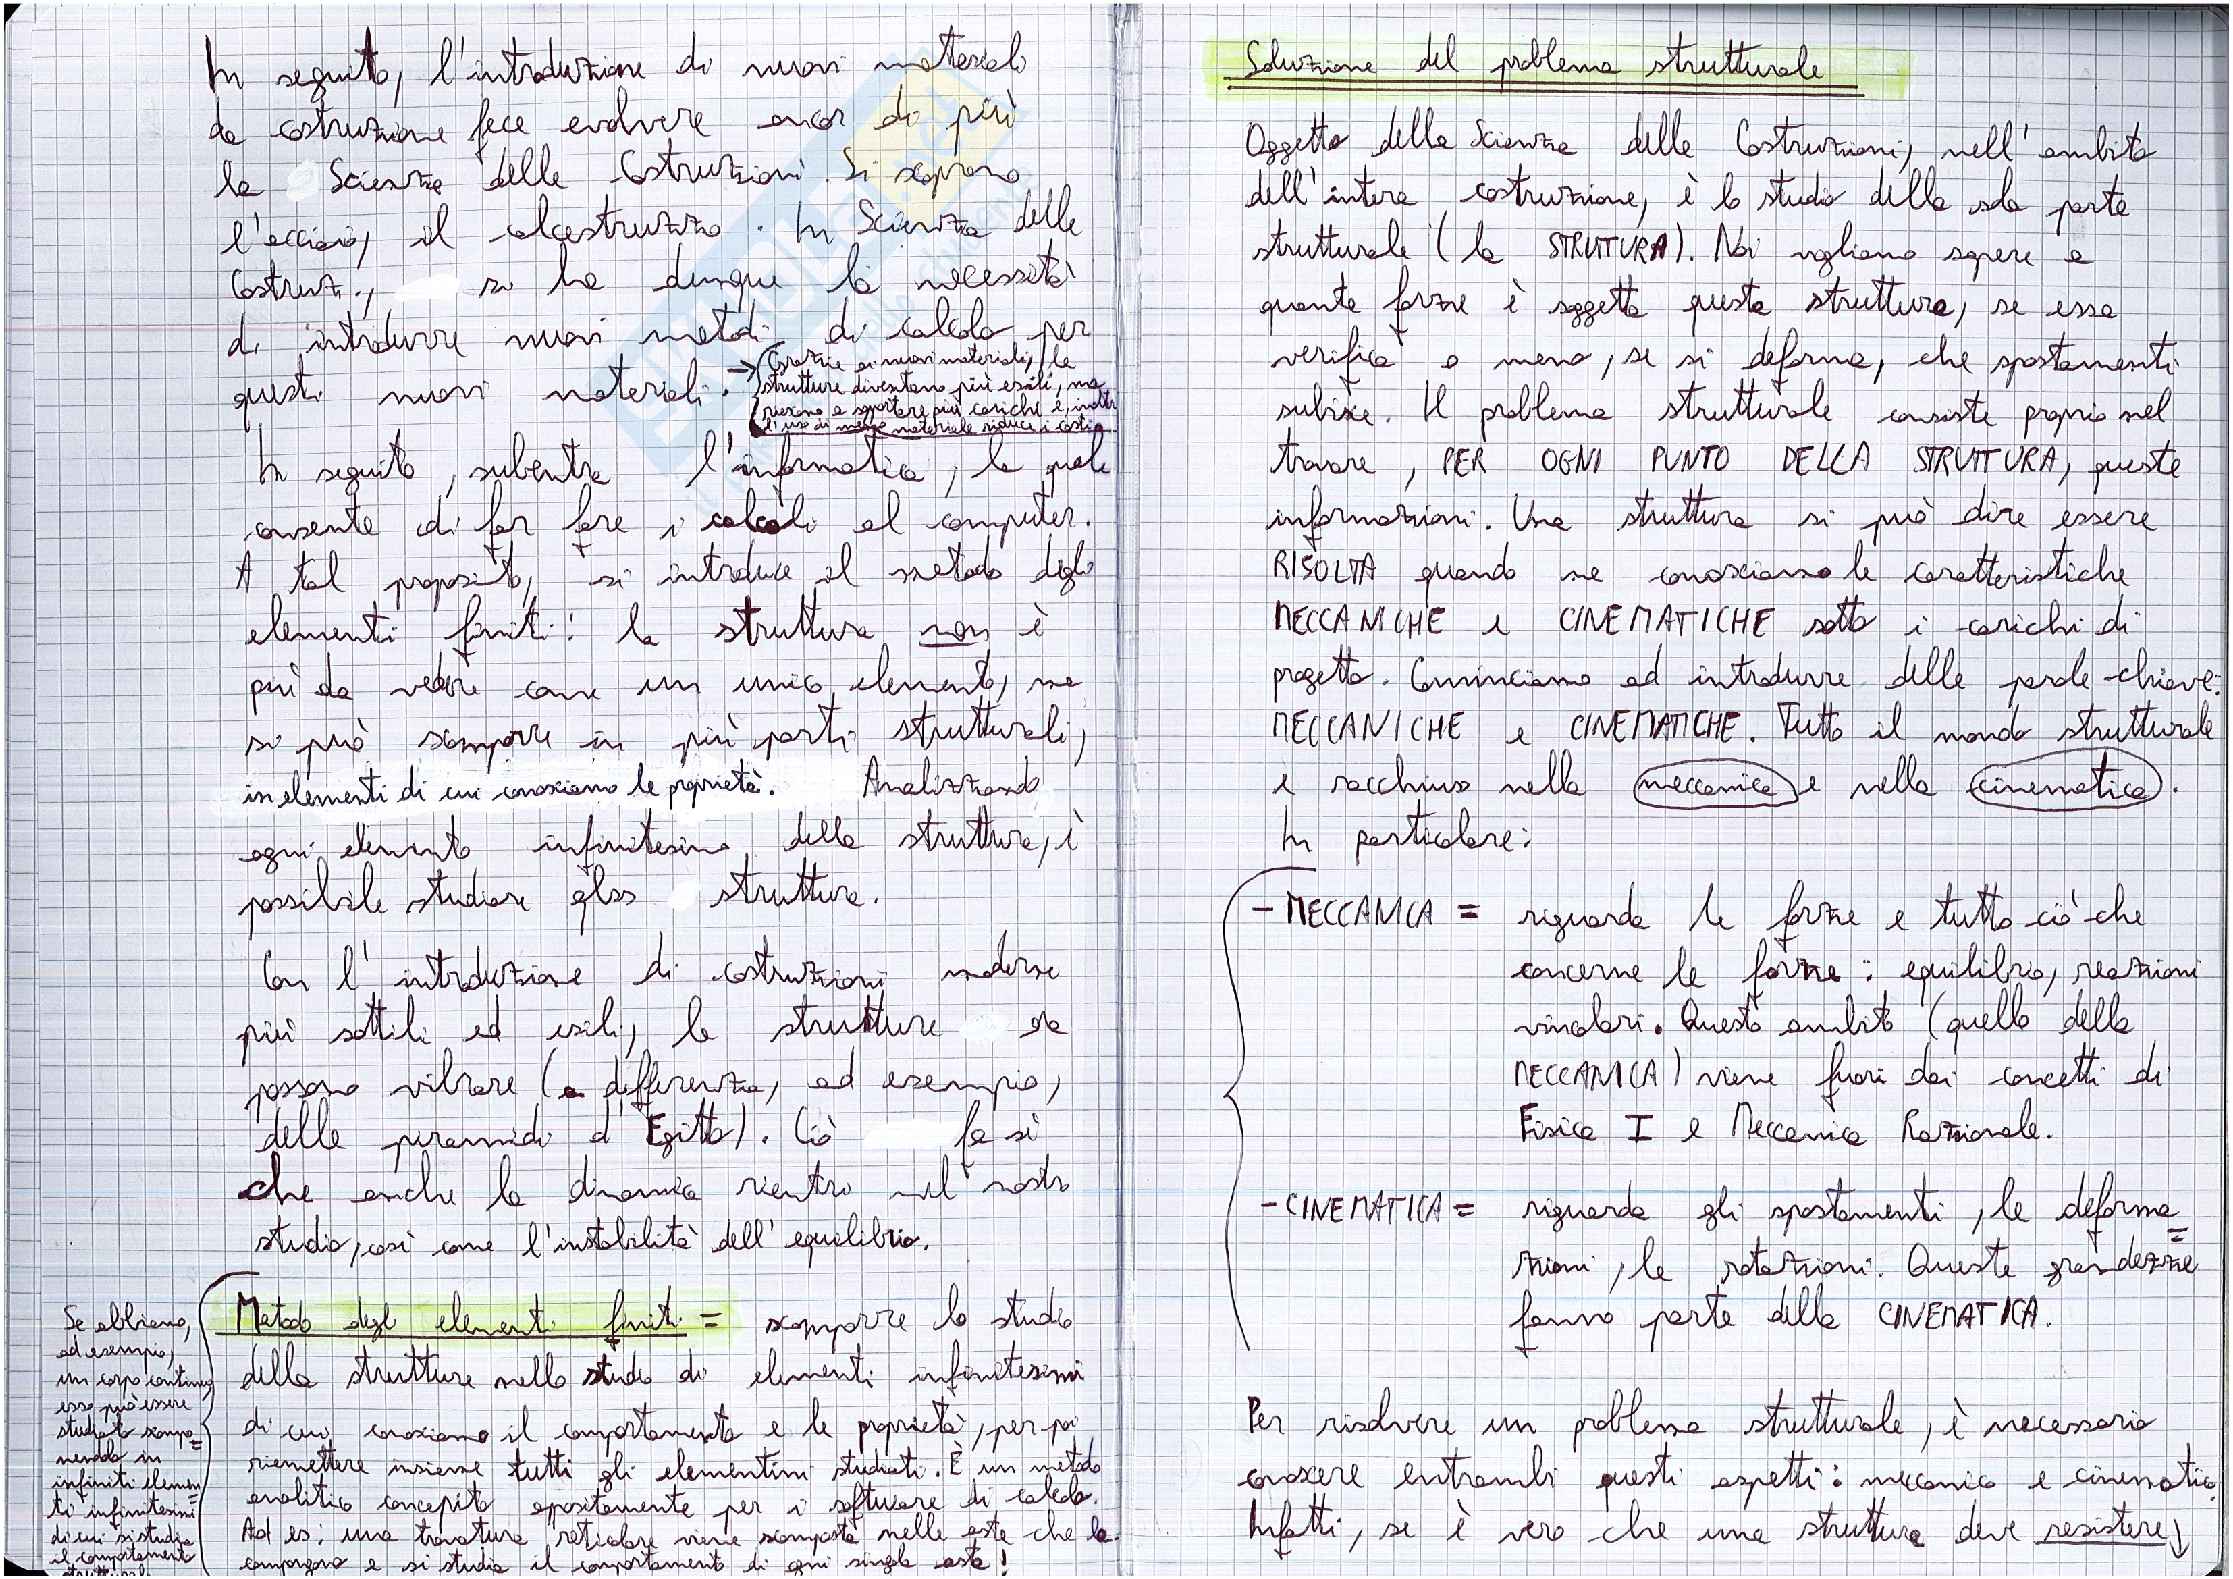 In seguito, l'introduzione di nuovi materiali
da costruzione fece evolvere ancor di più
la Scienza delle Costruzioni. Si scoprono
l'acciaio, il calcestruzzo. In Scienza delle
Costruz., si ha dunque la necessità
di introdurre nuovi metodi di calcolo per
questi nuovi materiali. → Grazie ai nuovi materiali, le
strutture diventano più esili, ma
riescono a sopportare più carichi e, inoltre
l'uso di meno materiale riduce i costi.
In seguito, subentra l'informatica, la quale
consente di far fare i calcoli al computer.
A tal proposito, si introduce il metodo degli
elementi finiti: la struttura non è
più da vedere come un unico elemento, ma
si può scomporre in più parti strutturali,
in elementi di cui conosciamo le proprietà. Analizzando
ogni elemento infinitesimo della struttura, è
possibile studiare struttura.
Con l'introduzione di costruzioni moderne
più sottili ed esili, le strutture
possono vibrare (a differenza, ad esempio,
delle piramidi d'Egitto). Ciò fa sì
che anche la dinamica rientri nel nostro
studio, così come l'instabilità dell'equilibrio.
Metodo degli elementi finiti = scomporre lo studio
della struttura nello studio di elementi infinitesimi
di cui conosciamo il comportamento e le proprietà, per poi
riemettere insieme tutti gli elementini studiati. È un metodo
analitico concepito appositamente per i software di calcolo.
Ad es: una travatura reticolare viene scomposta nelle aste che la
compongono e si studia il comportamento di ogni singola asta!
Se abbiamo,
ad esempio,
un corpo continuo,
esso può essere
studiato scompo=
nendolo in
infiniti elemen=
ti infinitesimi
di cui si studia
il comportamento
strutturale
Soluzione del problema strutturale
Oggetto della Scienza delle Costruzioni, nell'ambito
dell'intera costruzione, è lo studio della sola parte
strutturale (la STRUTTURA). Noi vogliamo sapere a
quante forze è soggetta questa struttura, se essa
verifica o meno, se si deforma, che spostamenti
subisce. Il problema strutturale consiste proprio nel
trovare, PER OGNI PUNTO DELLA STRUTTURA, queste
informazioni. Una struttura si può dire essere
RISOLTA quando ne conosciamo le caratteristiche
MECCANICHE e CINEMATICHE sotto i carichi di
progetto. Cominciamo ad introdurre delle parole-chiave:
MECCANICHE e CINEMATICHE. Tutto il mondo strutturale
è racchiuso nella meccanica e nella cinematica.
In particolare:
- MECCANICA = riguarda le forze e tutto ciò che
concerne le forze: equilibrio, reazioni
vincolari. Questo ambito (quello della
MECCANICA) viene fuori dai concetti di
Fisica I e Meccanica Razionale.
- CINEMATICA = riguarda gli spostamenti, le deforma=
zioni, le rotazioni. Queste grandezze
fanno parte della CINEMATICA.
Per risolvere un problema strutturale, è necessario
conoscere entrambi questi aspetti: meccanico e cinematico.
Infatti, se è vero che una struttura deve resistere ↓